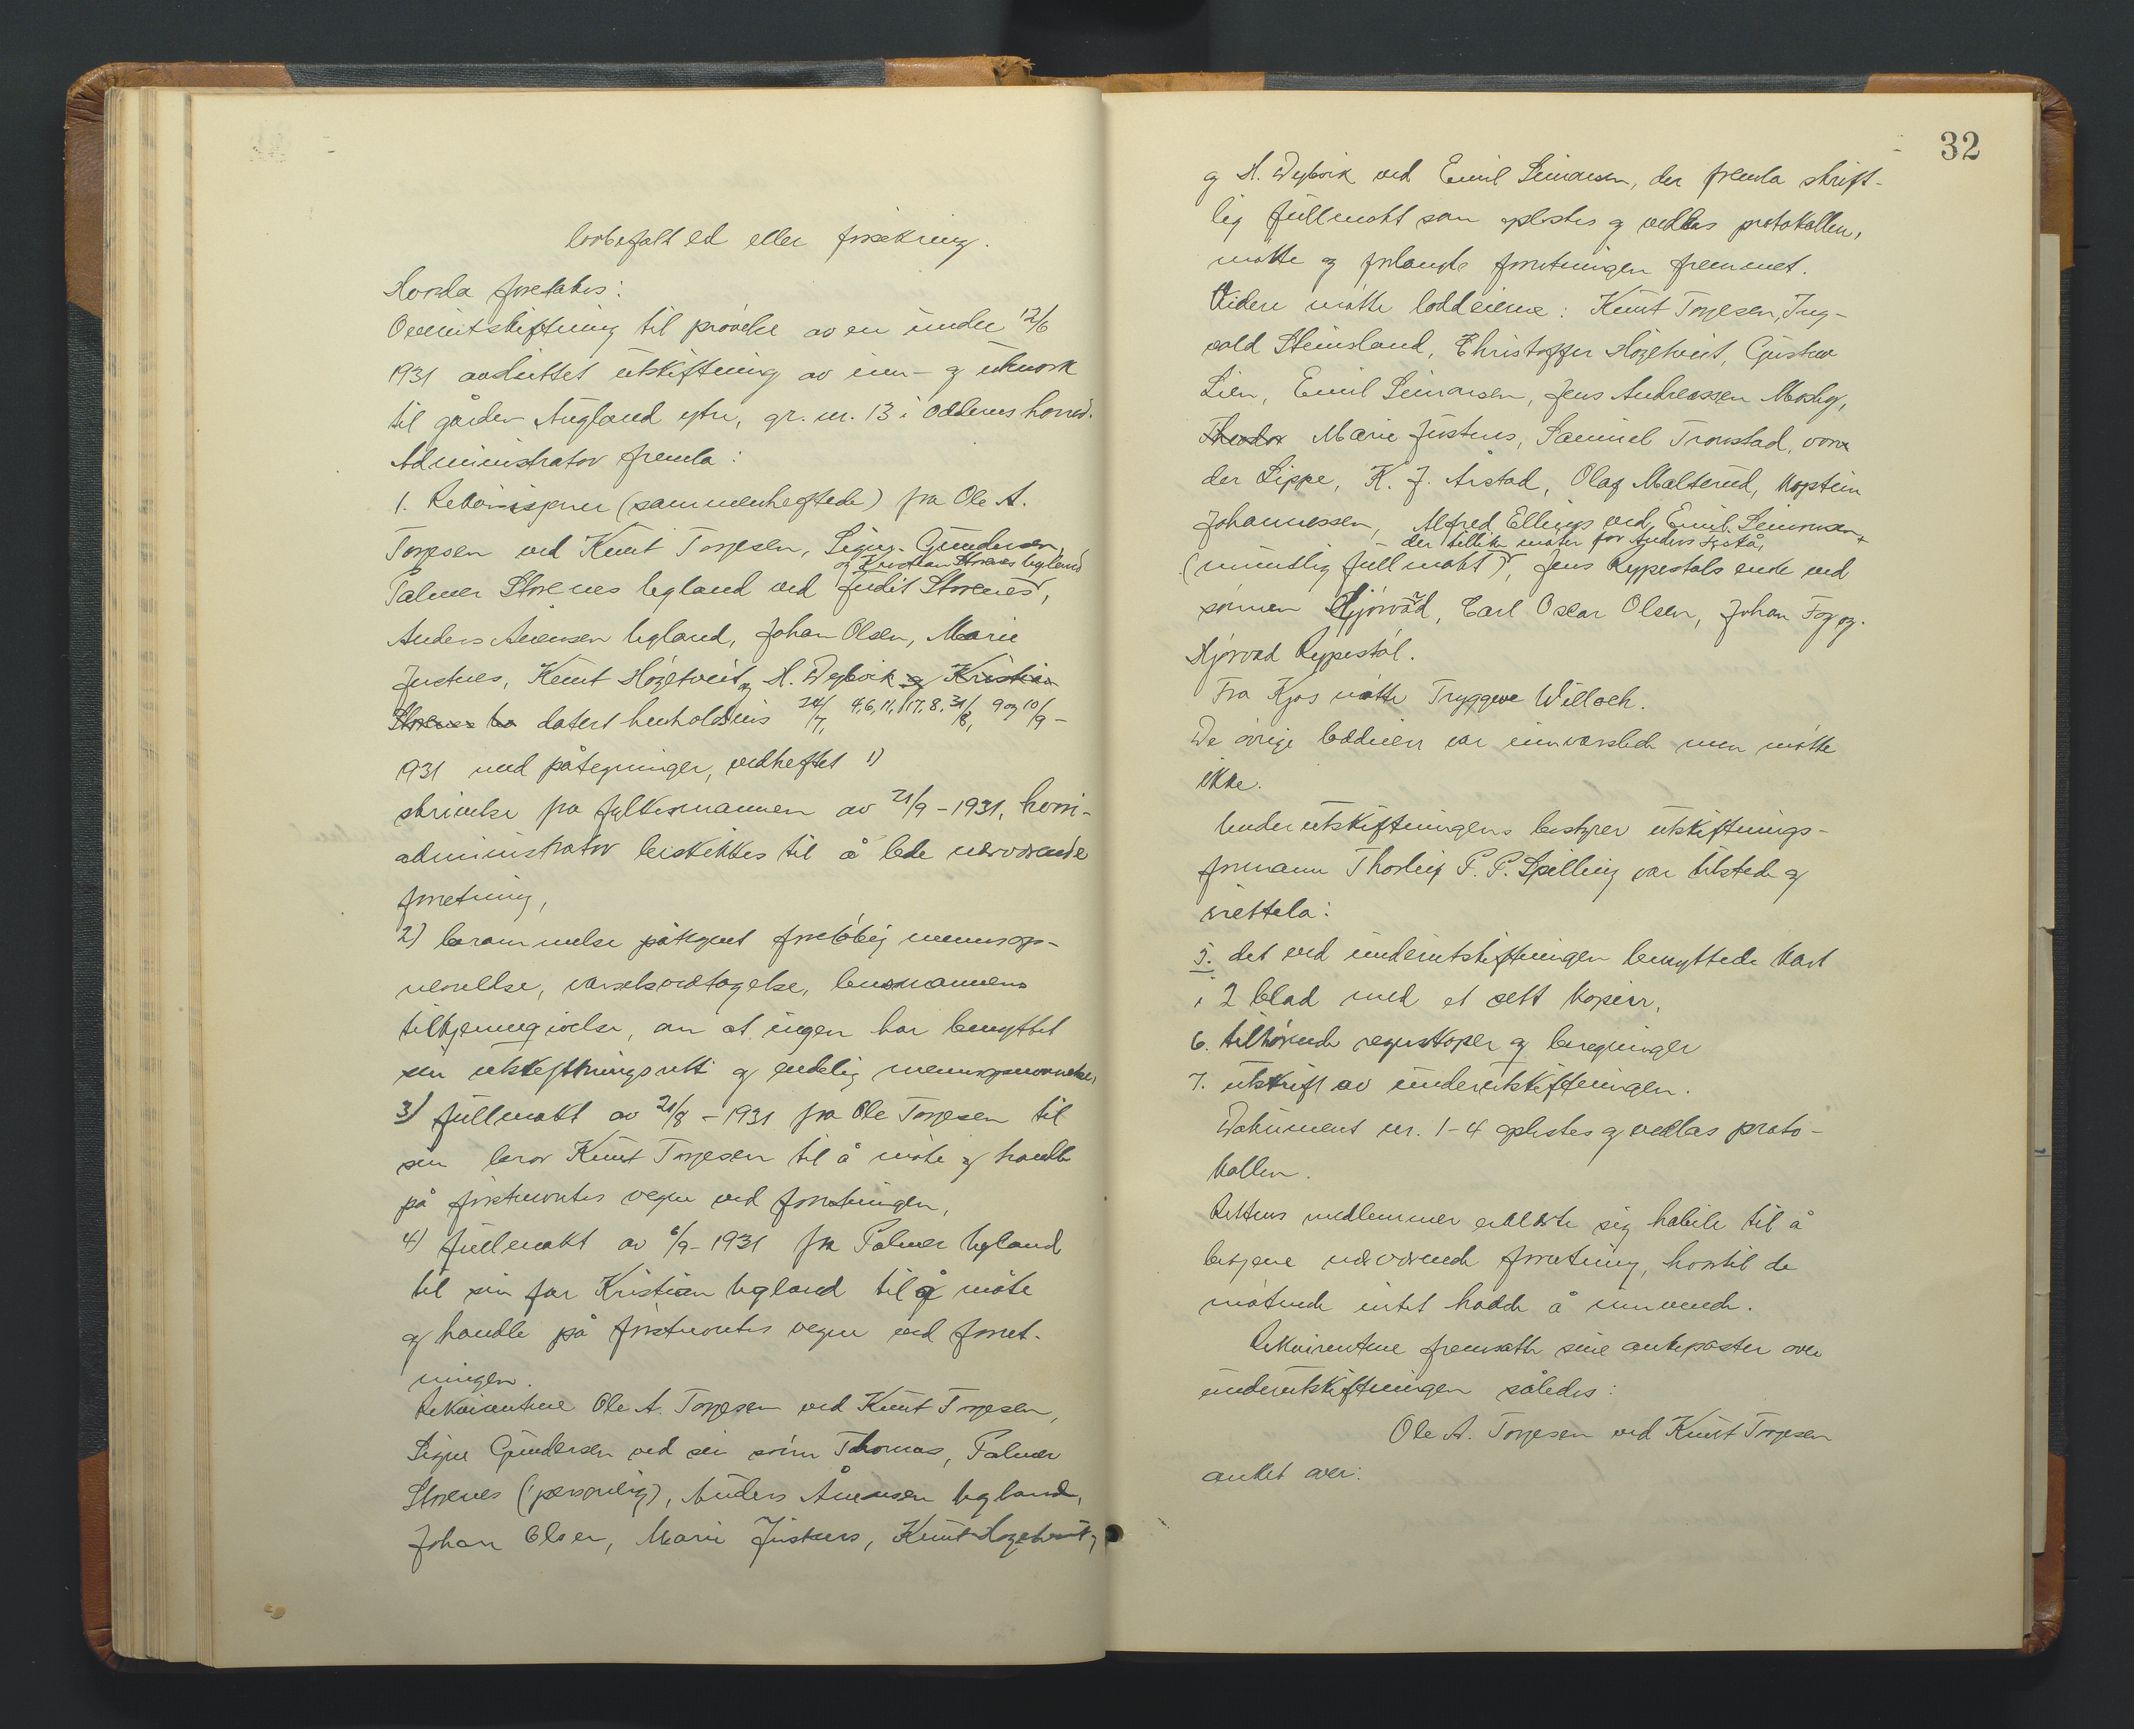 lovbefalt ed eller forsikring.
Hvorda foretakes:
Overutskiftning til prövelse av en under 12/6
1931 avsluttet utskiftning av inn- og utmark
til gården Augland ytre, gr. nr. 13 i Oddernes herred.
Administrator fremla:
1. Rekvisisjoner (sammenheftede) fra Ole A.
Torjesen ved Knut Torjesen, Signe Gundersen,
og Kristian Storenes Ugland
Palmer Storenes Ugland ved Judit Storenes,
Anders Aanensen Ugland, Johan Olsen, Marie
Justnes, Knut Högetveit, og H. Dybvik og Kristian
Storenes datert henholdsvis 24/7, 4, 6, 11, 17, 8, 31/8, 9 og 10/9 -
1931 med påtegninger, vedheftet 1)
skrivelse fra fylkesmannen av 21/9 - 1931, hvori-
administrator beskikkes til å lede nærværende
forretning,
2) berammelse påtegnet foreløbig mennsopp-
nevnelse, varselsvedtagelse, lensmannens
tilkjennegivelse, om at ingen har benyttet
sin utskiftningsrett og endelig mennsopnevnelse,
3) fullmakt av 21/8 - 1931 fra Ole Torjesen til
sin bror Knut Torjesen til å möte og handle
på förstnevntes vegne ved forretningen,
4) fullmakt av 6/9 - 1931 fra Palmer Ugland
til sin far Kristian Ugland til å möte
og handle på förstnevntes vegne ved forret-
ningen.
Rekvirentene Ole A. Torjesen ved Knut Torjesen,
Signe Gundersen ved sin sönn Thomas, Palmer
Storenes (personlig), Anders Ånensen Ugland,
Johan Olsen, Marie Justnes, Knut Högetveit,
32
og H. Dybvik ved Emil Simonsen, der fremla skrift-
lig fullmakt som oplestes og vedlas protokollen,
mötte og forlangte forretningen fremmet.
Videre mötte loddeierne: Knut Torjesen, Ing-
vald Steinsland, Christoffer Högetveit, Gustav
Lien, Emil Simonsen, Jens Andreassen Mosby,
Theodor Marie Justnes, Samuel Tronstad, von
der Lippe, K. J. Årstad, Olaf Malterud, kaptein
Johannessen, Alfred Ellings ved Emil Simonsen
- der tillike möter for Anders
(muntlig fullmakt), Jens Rypestöls enke ved
sönnen Hjörvad, Carl Oscar Olsen, Johan Fog og
Hjörvad Rypestöl.
Fra Kjos mötte Tryggve Willoch.
De övrige loddeiere var innvarslede men mötte
ikke.
Underutskiftningens bestyrer utskiftnings-
formann Thorleif P. P. Spilling var tilstede og
irettela:
5. det ved underutskiftningen benyttede kart
i 2 blad med et sett kopier,
6. tilhörende registraper og beregninger
7. utskrift av underutskiftningen.
Dokument nr. 1-4 oplestes og vedlas proto-
kollen.
Rettens medlemmer erklærte sig habile til å
betjene nærværende forretning, hvortil de
mötende intet hadde å innvende.
Rekvirentene fremsatte sine ankeposter over
underutskiftningen således:
Ole A. Torjesen ved Knut Torjesen
anket over: